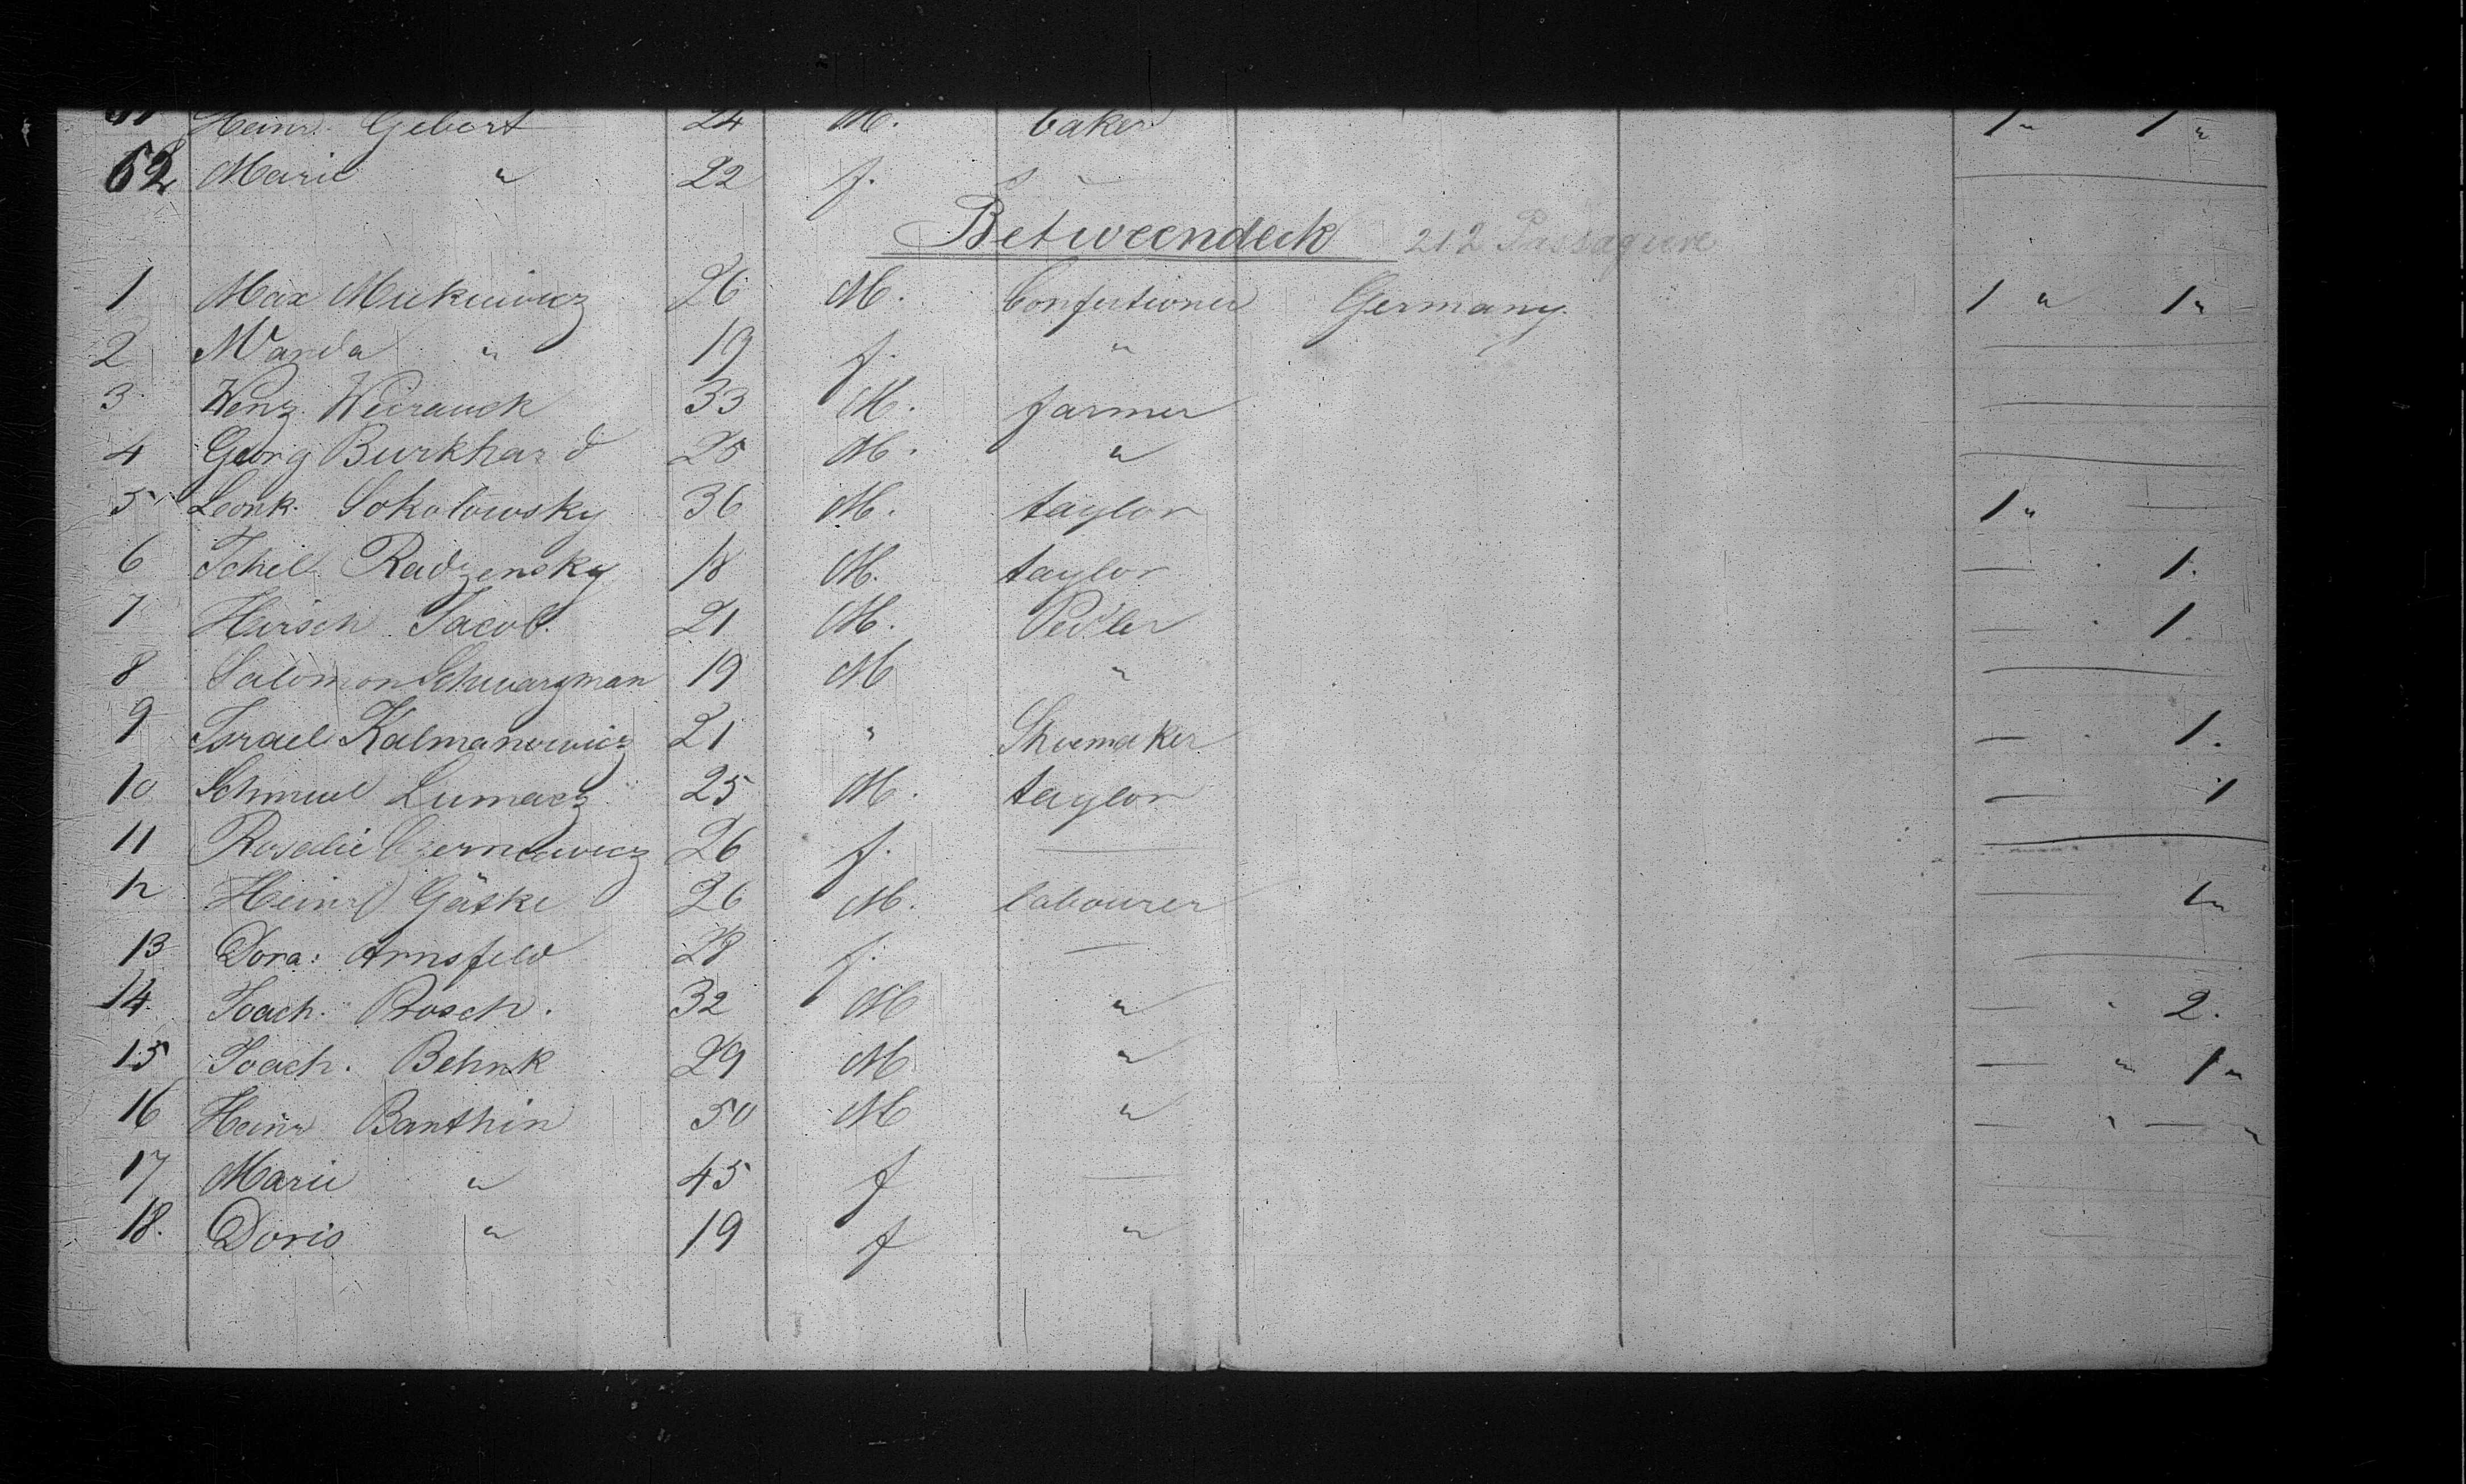 Heinr. Gebert 24 M. baker 1 " 1 "
62 Marie " 22 f. "
Betweendeck 212 Passagiere
1 Max Mickiewicz 26 M. Confectioner Germany. 1 " 1 "
2 Wanda " 19 f. "
3 Wenz. Weirauck 33 M. farmer
4 Georg Burkhard 25 M. "
5 Leonk. Sokolowsky 36 M. taylor 1 "
6 Radzensky 18 M. taylor 1.
7 Hirsch Jacob. 21 M. Pedler 1
8 Salomon Schwarzman 19 M "
9 Israel Kalmanowicz 21 " Shoemaker 1.
10 Schmul Lumacz 25 M. taylor 1
11 Rosalie 26 f.
12 Heinr Gäske 26 M. labourer 1 "
13 Dora: Arnsfeld 28 f.
14 Joach. Bosch. 32 M " " 2.
15 Joach. Behnk 29 M " " 1 "
16 Heinr Banthin 50 M " " "
17 Marie " 45 f
18. Doris " 19 f "